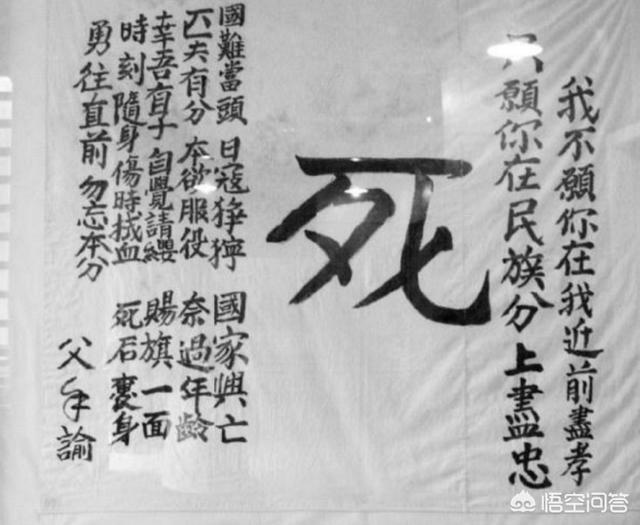 我不願你在我近前盡孝
只願你在民族分上盡忠
死
國難當頭 日寇猙獰 國家興亡
匹夫有分 本欲服役 奈過年齡
幸吾有子 自覺請纓 賜旗一面
時刻隨身 傷時拭血 死后裹身
勇往直前 勿忘本分
父手諭
悟空问答